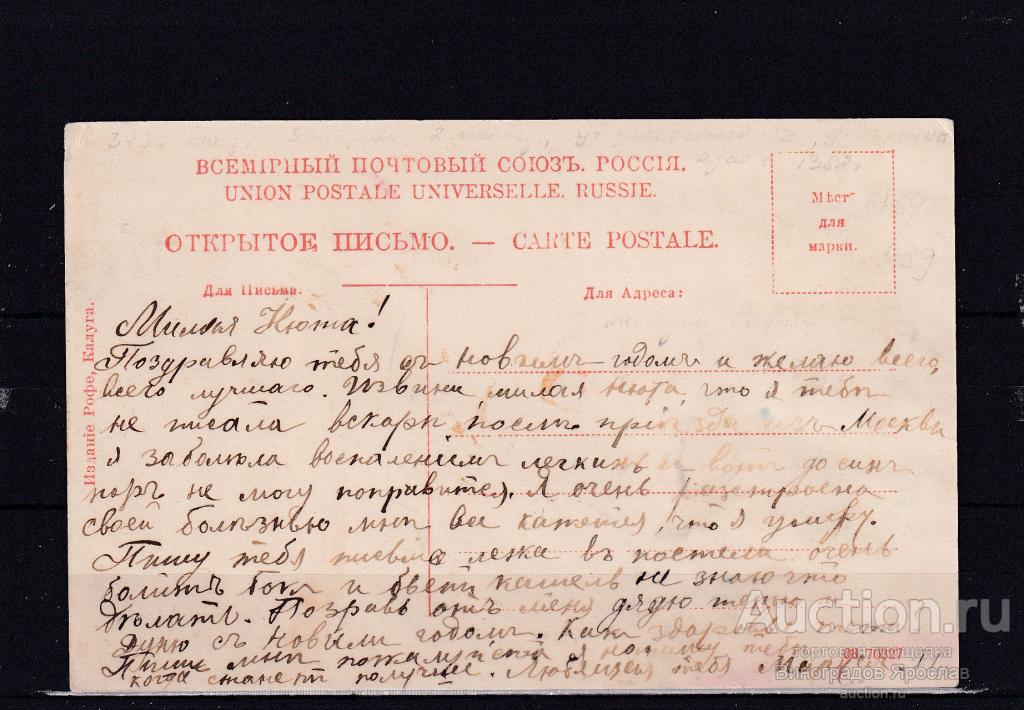 ВСЕМІРНЫЙ ПОЧТОВЫЙ СОЮЗЪ. РОССІЯ.
UNION POSTALE UNIVERSELLE. RUSSIE.
ОТКРЫТОЕ ПИСЬМО. — CARTE POSTALE.
Мѣст
для
марки.
1382
Для Письма.
Для Адреса:
Изданіе Рофе, Калуга.
Милая Нюта!
Поздравляю тебя съ новымъ годомъ и желаю всего,
всего лучшаго. Извини милая Нюта, что я тебѣ
не писала вскорѣ послѣ пріѣзда изъ Москвы
я заболѣла воспаленіемъ легкихъ и вотъ до сихъ
поръ не могу поправится. Я очень разстроена
своей болѣзнью мнѣ все кажется, что я умру.
Пишу тебѣ письмо лежа въ постели очень
болитъ бокъ и бьетъ кашель не знаю что
дѣлать. Поздравь отъ меня дядю тетю и
съ новымъ годомъ. Какъ
Пиши мнѣ пожалуйста я напишу тебѣ
когда станетъ получше. Любящая тебя
28.70327
Auction.ru
торговая площадка
Виноградов Ярослав
auction.ru